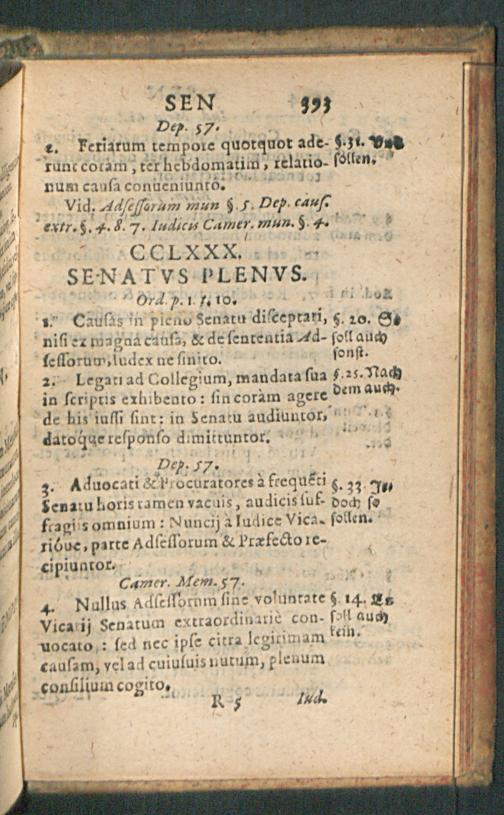 SEN 393
Dep. 57.
2. Feriarum tempore quotquot ade- §. 31. Und
runt coràm, ter hebdomatim, relatio- sollen.
num causa conueniunto.
Vid. Adsessorum mun §. 5. Dep. caus.
extr. §. 4. 8. 7. Iudicis Camer. mun. §. 4.
CCLXXX.
SENATVS PLENVS.
Ord. p. 1. t. 10.
1. Causas in pleno Senatu disceptari, §. 20. So
nisi ex magna causa, & de sententia Ad- soll auch
sessorum, Iudex ne sinito. sonst.
2. Legati ad Collegium, mandata sua §. 25. Nach
in scriptis exhibento: sin coràm agere dem auch.
de his iussi sint: in Senatu audiuntor,
datoq́ue responso dimittuntor.
Dep. 57.
3. Aduocati & Procuratores à frequẽti §. 33.
Senatu horis tamen vacuis, audicis suf- doch so
fragiis omnium: Nuncij à Iudice Vica- sollen.
rióue, parte Adsessorum & Præfecto re-
cipiuntor.
Camer. Mem. 57.
4. Nullus Adsessorum sine voluntate §. 14. Es
Vicarij Senatum extraordinariè con- soll auch
uocato: sed nec ipse citra legitimam kein.
causam, vel ad cuiusuis nutum, plenum
consilium cogito.
R 5 Iud.